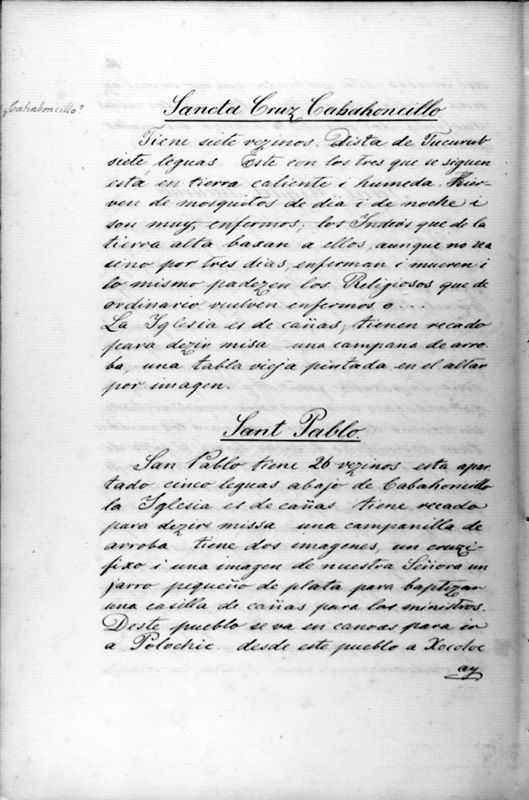 ¿Cahaboncillo?
Sancta Cruz Cabahoncillo
Tiene siete vezinos. Dista de Tucurub
siete leguas Este con los tres que se siguen
está en tierra caliente i humeda. Hier-
ven de mosquitos de dia i de noche i
son muy enfermos; los Indios que de la
tierra alta baxan a ellos, aunque no sea
sino por tres dias, enferman i mueren i
lo mismo padezen los Religiosos que de
ordinario vuelven enfermos o...
La Iglesia es de cañas, tienen recado
para dezir misa una campana de arro-
ba, una tabla vieja pintada en el altar
por imagen.
Sant Pablo.
San Pablo tiene 26 vezinos esta apar-
tado cinco leguas abajo de Cabahoncillo
la Iglesia es de cañas tiene recado
para dezir missa una campanilla de
arroba tiene dos imagenes, un cruzi
fixo i una imagen de nuestra Señora un
jarro pequeño de plata para baptizar
una casilla de cañas para los ministros.
Deste pueblo se va en canoas para ir
a Polochic desde este pueblo a Xocoloc
ay